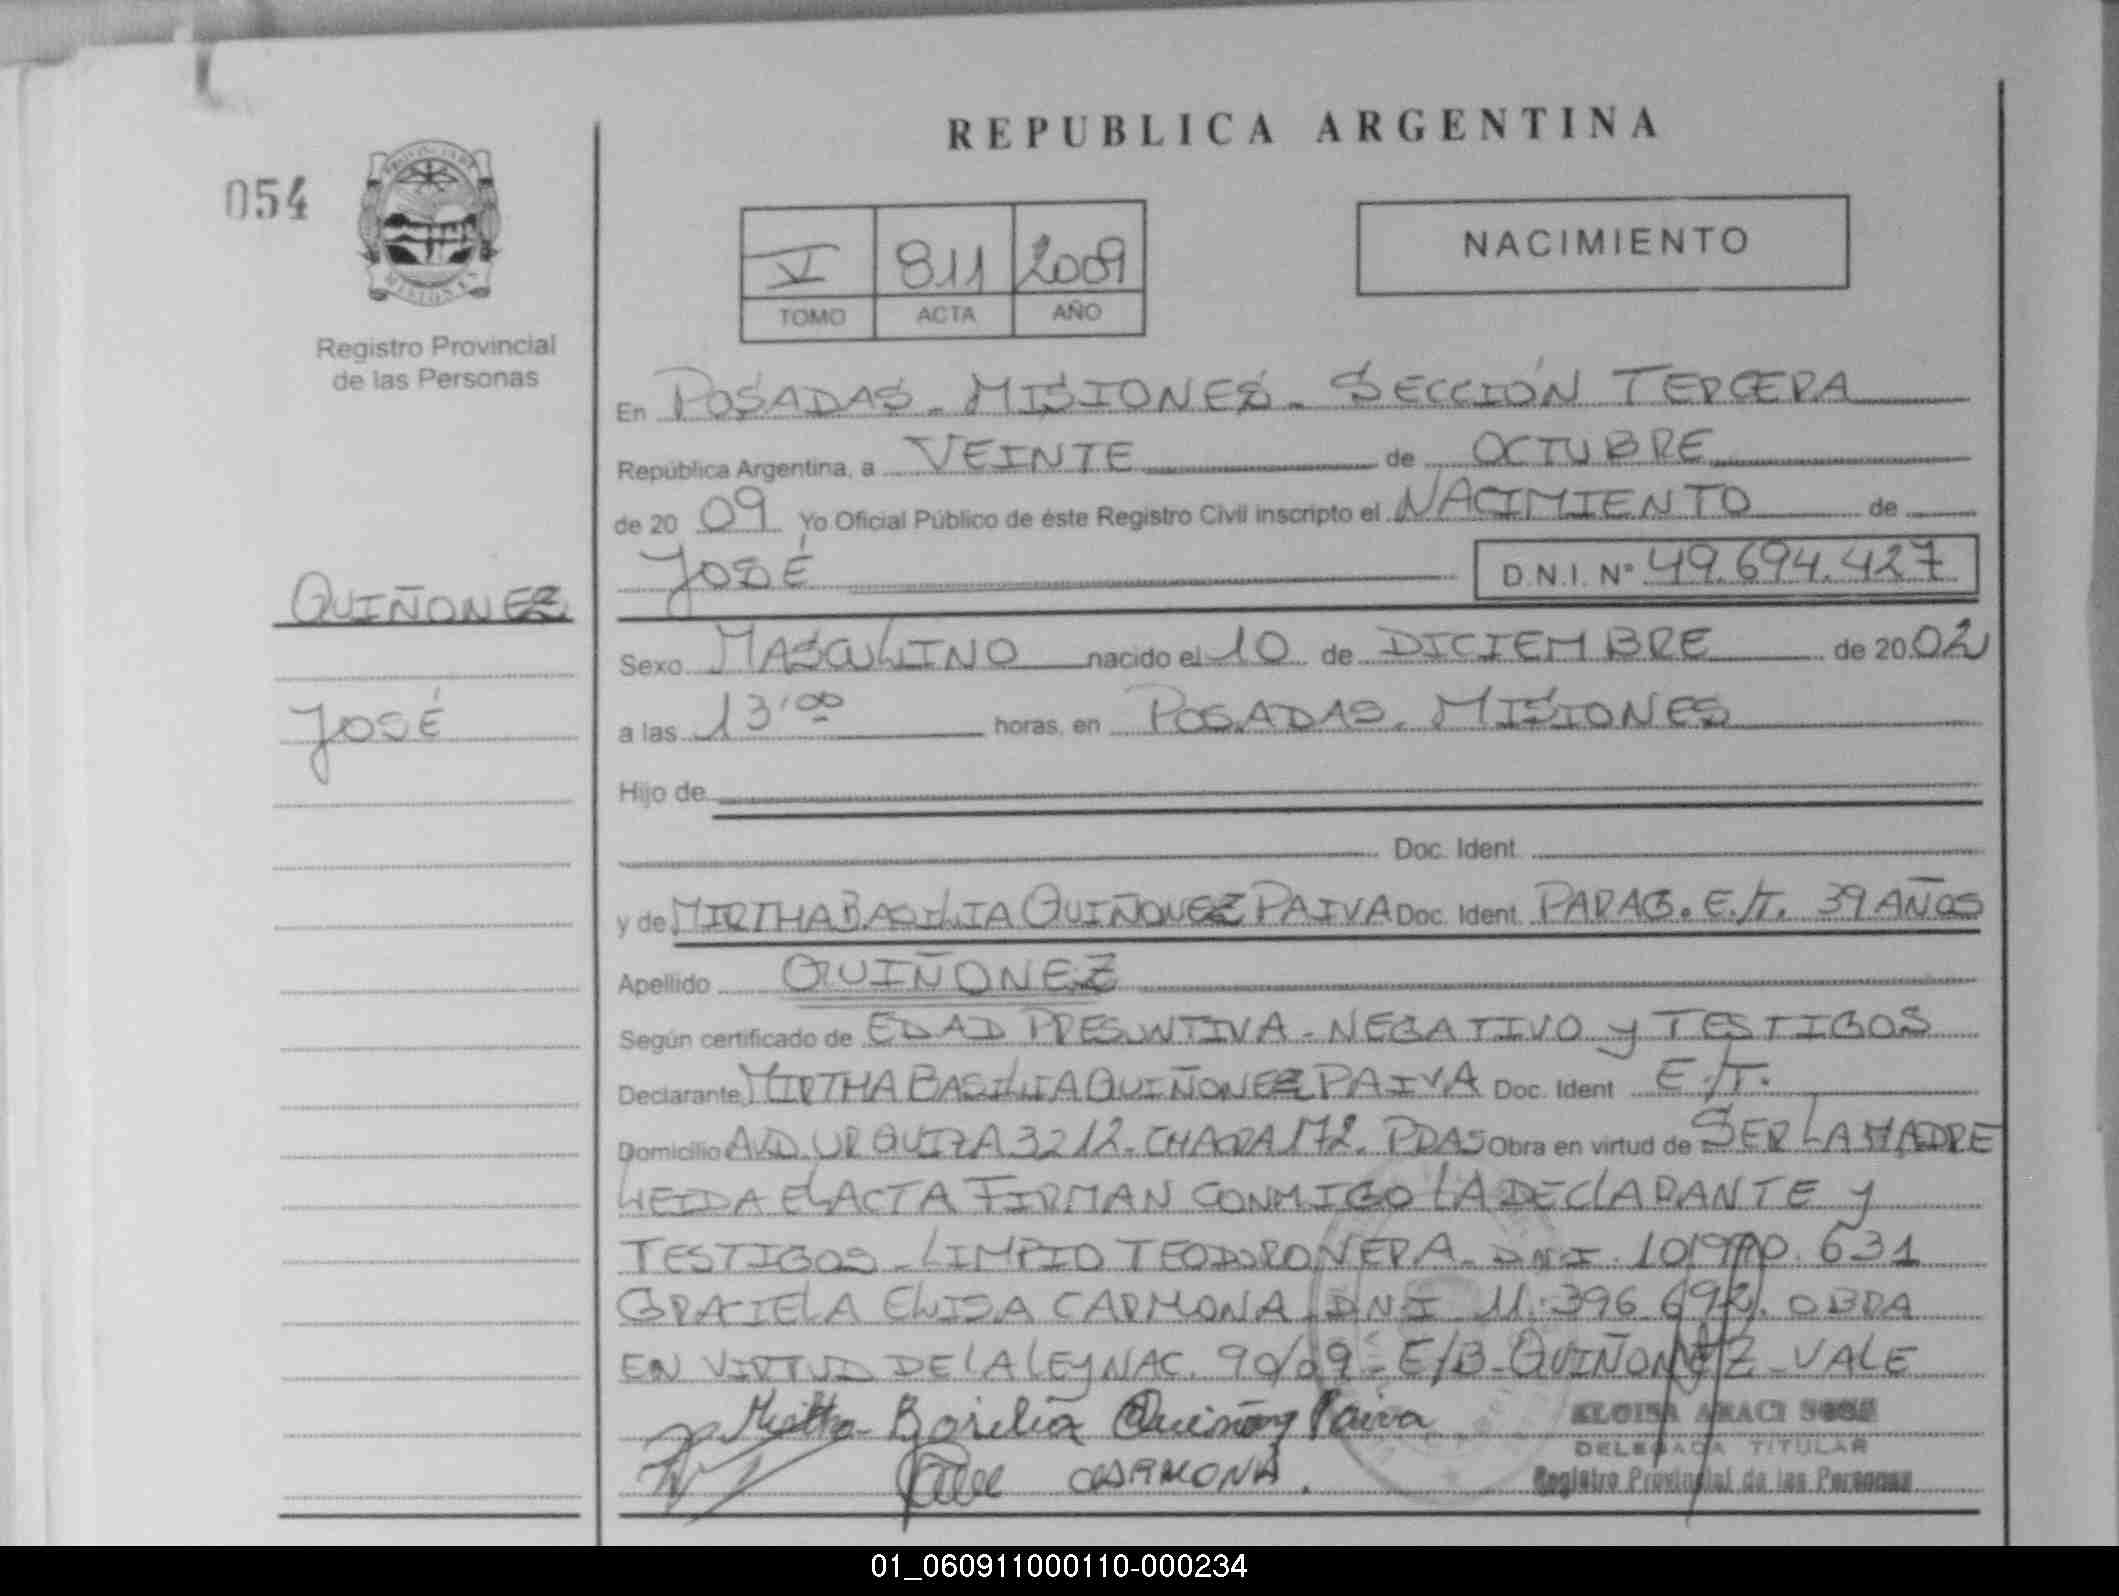 REPUBLICA ARGENTINA
054
V 811 2009
TOMO ACTA AÑO
NACIMIENTO
Registro Provincial
de las Personas
En POSADAS - MISIONES - SECCIÓN TERCERA
República Argentina, a VEINTE de OCTUBRE
de 20 09 Yo Oficial Público de éste Registro Civil inscripto el NACIMIENTO de
JOSÉ D.N.I. Nº 49.694.427
QUIÑONEZ
Sexo MASCULINO nacido el 10 de DICIEMBRE de 20 02
JOSÉ
a las 13'00 horas, en POSADAS - MISIONES
Hijo de
Doc. Ident.
y de MIRTHA BASILIA QUIÑONEZ PAIVA Doc. Ident. PARAG. E/T. 39 AÑOS
Apellido QUIÑONEZ
Según certificado de EDAD PRESUNTIVA - NEGATIVO y TESTIGOS
Declarante MIRTHA BASILIA QUIÑONEZ PAIVA Doc. Ident E/T.
Domicilio AVD. URQUIZA 3212 - CHACRA 172 - PDAS Obra en virtud de SER LA MADRE
LEIDA EL ACTA FIRMAN CONMIGO LA DECLARANTE y
TESTIGOS - LIMPIO TEODORO VERA - DNI 631
GRACIELA ELISA CARMONA - DNI 11.396.692. OBRA
EN VIRTUD DE LA LEY NAC. 90/09 - E/B - QUIÑONEZ - VALE
Mirtha Basilia Quiñonez Paiva
CARMONA.
ELOISA ARACI SOSA
DELEGADA TITULAR
Registro Provincial de las Personas
01_060911000110-000234